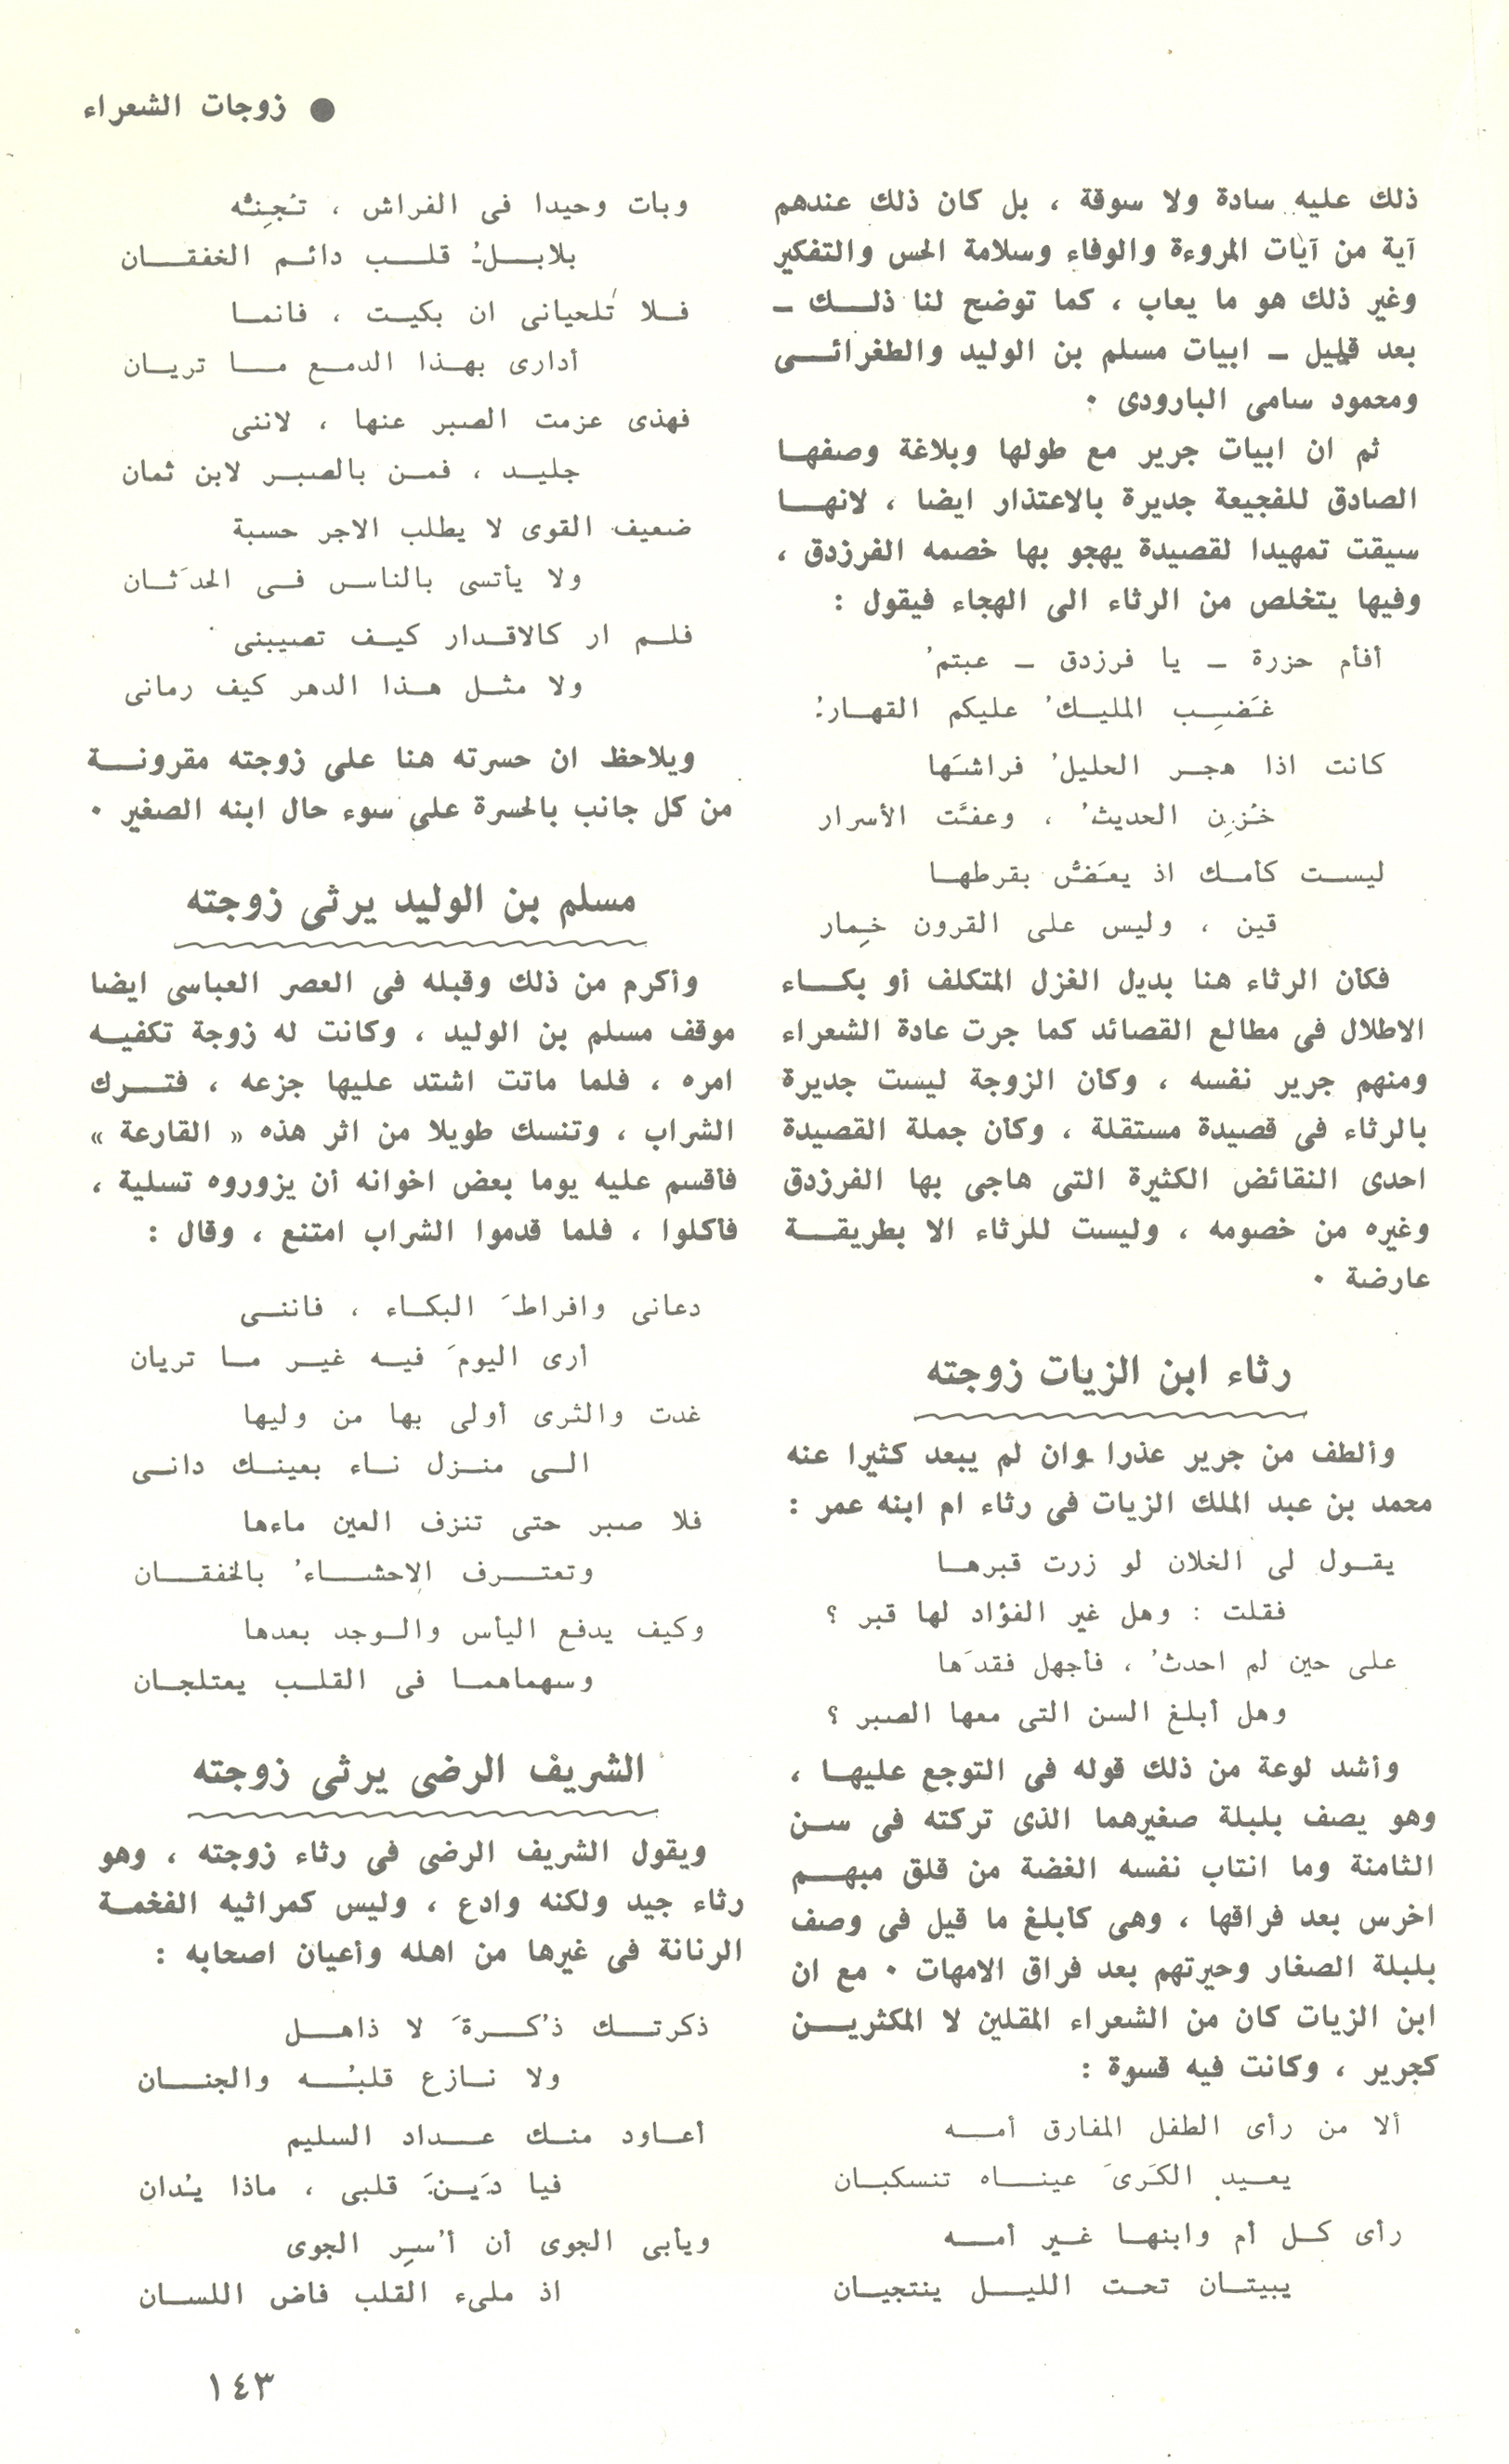 ● زوجات الشعراء
ذلك عليه سادة ولا سوقة ، بل كان ذلك عندهم
آية من آيات المروءة والوفاء وسلامة الحس والتفكير
وغير ذلك هو ما يعاب ، كما توضح لنا ذلك –
بعد قليل – ابيات مسلم بن الوليد والطغرائى
ومحمود سامى البارودى ٠
ثم ان ابيات جرير مع طولها وبلاغة وصفها
الصادق للفجيعة جديرة بالاعتذار ايضا ، لانها
سيقت تمهيدا لقصيدة يهجو بها خصمه الفرزدق ،
وفيها يتخلص من الرثاء الى الهجاء فيقول :
أفأم حزرة – يا فرزدق – عبتمُ
غَضِب المليكُ عليكم القهارُ
كانت اذا هجر الحليلُ فراشَها
خُزِن الحديثُ ، وعفَّت الأسرار
ليست كأمك اذ يعَضُّ بقرطها
قين ، وليس على القرون خِمار
فكأن الرثاء هنا بديل الغزل المتكلف أو بكاء
الاطلال فى مطالع القصائد كما جرت عادة الشعراء
ومنهم جرير نفسه ، وكأن الزوجة ليست جديرة
بالرثاء فى قصيدة مستقلة ، وكأن جملة القصيدة
احدى النقائض الكثيرة التى هاجى بها الفرزدق
وغيره من خصومه ، وليست للرثاء الا بطريقة
عارضة ٠
رثاء ابن الزيات زوجته
وألطف من جرير عذرا وان لم يبعد كثيرا عنه
محمد بن عبد الملك الزيات فى رثاء ام ابنه عمر :
يقول لى الخلان لو زرت قبرها
فقلت : وهل غير الفؤاد لها قبر ؟
على حين لم احدثُ ، فأجهل فقدَها
وهل أبلغ السن التى معها الصبر ؟
وأشد لوعة من ذلك قوله فى التوجع عليها ،
وهو يصف بلبلة صغيرهما الذى تركته فى سن
الثامنة وما انتاب نفسه الغضة من قلق مبهم
اخرس بعد فراقها ، وهى كأبلغ ما قيل فى وصف
بلبلة الصغار وحيرتهم بعد فراق الامهات ٠ مع ان
ابن الزيات كان من الشعراء المقلين لا المكثرين
كجرير ، وكانت فيه قسوة :
ألا من رأى الطفل المفارق أمه
يعيد الكَرىَ عيناه تنسكبان
رأى كل أم وابنها غير أمه
يبيتان تحت الليل ينتجيان
وبات وحيدا فى الفراش ، تُجِنُّه
بلابلُ قلب دائم الخفقان
فلا تُلحيانى ان بكيت ، فانما
أدارى بهذا الدمع ما تريان
فهذى عزمت الصبر عنها ، لاننى
جليد ، فمن بالصبر لابن ثمان
ضعيف القوى لا يطلب الاجر حسبة
ولا يأتسى بالناس فى الحدَثان
فلم ار كالاقدار كيف تصيبنى
ولا مثل هذا الدهر كيف رمانى
ويلاحظ ان حسرته هنا على زوجته مقرونة
من كل جانب بالحسرة على سوء حال ابنه الصغير ٠
مسلم بن الوليد يرثى زوجته
وأكرم من ذلك وقبله فى العصر العباسى ايضا
موقف مسلم بن الوليد ، وكانت له زوجة تكفيه
امره ، فلما ماتت اشتد عليها جزعه ، فترك
الشراب ، وتنسك طويلا من اثر هذه « القارعة »
فأقسم عليه يوما بعض اخوانه أن يزوروه تسلية ،
فأكلوا ، فلما قدموا الشراب امتنع ، وقال :
دعانى وافراطَ البكاء ، فاننى
أرى اليومَ فيه غير ما تريان
غدت والثرى أولى بها من وليها
الى منزل ناء بعينك دانى
فلا صبر حتى تنزف العين ماءها
وتعترف الاحشاءُ بالخفقان
وكيف يدفع اليأس والوجد بعدها
وسهماهما فى القلب يعتلجان
الشريف الرضى يرثى زوجته
ويقول الشريف الرضى فى رثاء زوجته ، وهو
رثاء جيد ولكنه وادع ، وليس كمراثيه الفخمة
الرنانة فى غيرها من اهله وأعيان اصحابه :
ذكرتك ذُكرةَ لا ذاهل
ولا نازع قلبُه والجنان
أعاود منك عداد السليم
فيا دَينَ قلبى ، ماذا يُدان
ويأبى الجوى أن أُسِر الجوى
اذ ملىء القلب فاض اللسان
١٤٣